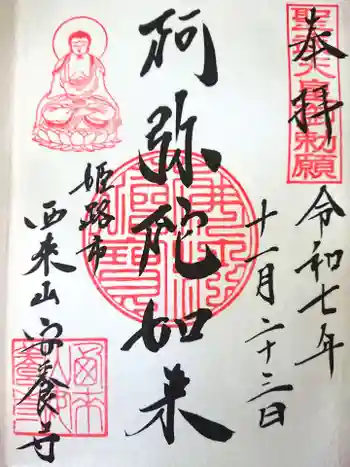 奉拝
令和七年
十一月二十三日
阿弥陀如来
姫路市
西来山 安養寺
聖武天皇御勅願